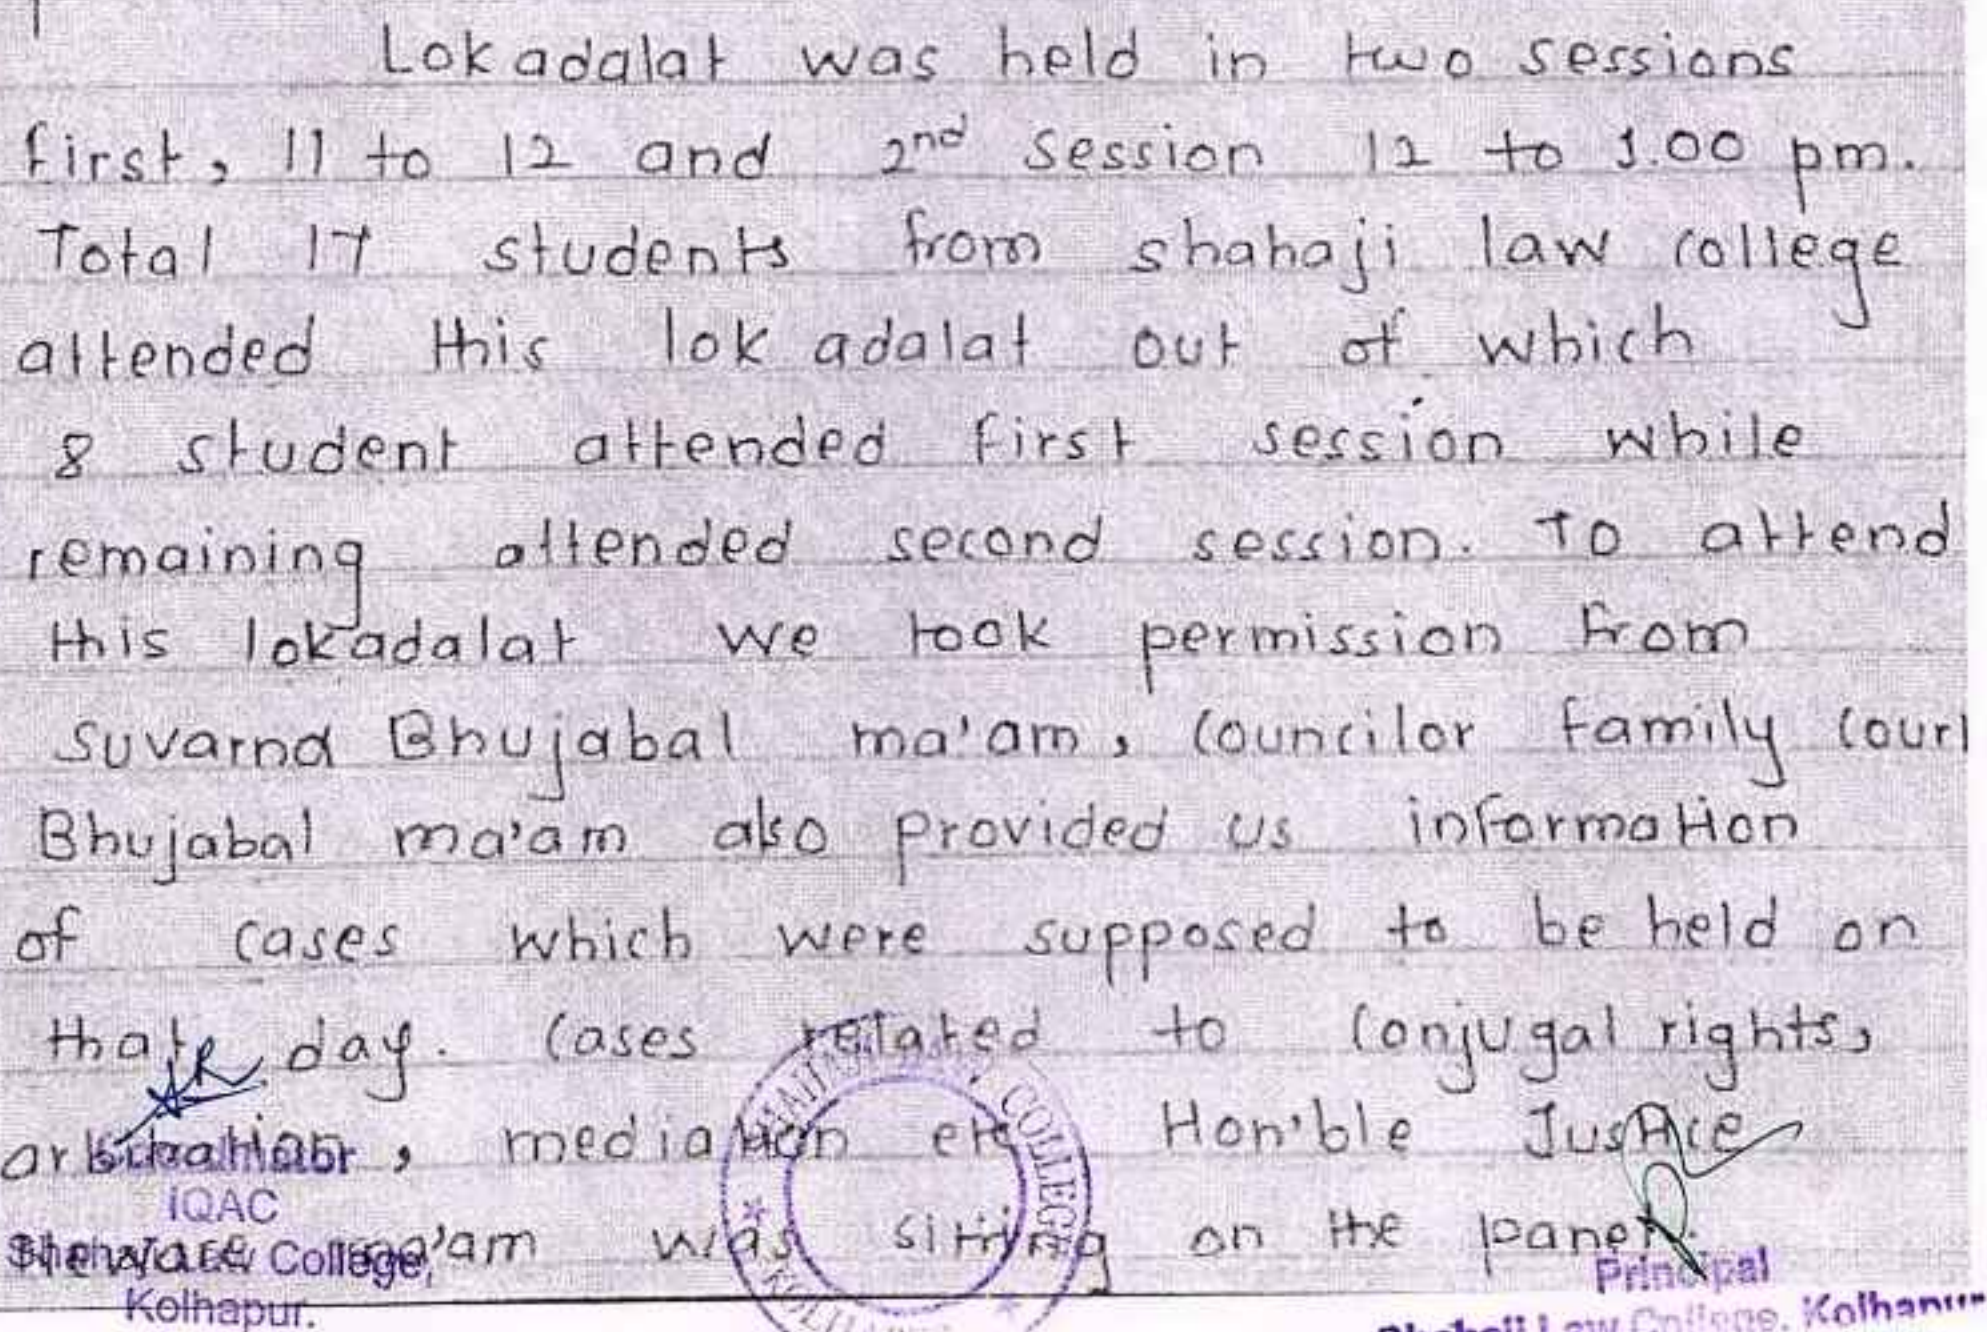 Lokadalat was held in two sessions
first, 11 to 12 and 2nd session 12 to 1.00 pm.
Total 17 students from shahaji law college
attended this lok adalat out of which
8 student attended first session while
remaining attended second session. To attend
this lokadalat we took permission from
Suvarna Bhujabal ma'am, councilor family court
Bhujabal ma'am also provided us information
of cases which were supposed to be held on
that day. Cases related to conjugal rights,
arbitration, mediation etc Hon'ble Justice
ma'am was sitting on the panel.
IQAC
Shahaji Law College,
Kolhapur.
COLLEGE
Principal
Shahaji Law College, Kolhapur